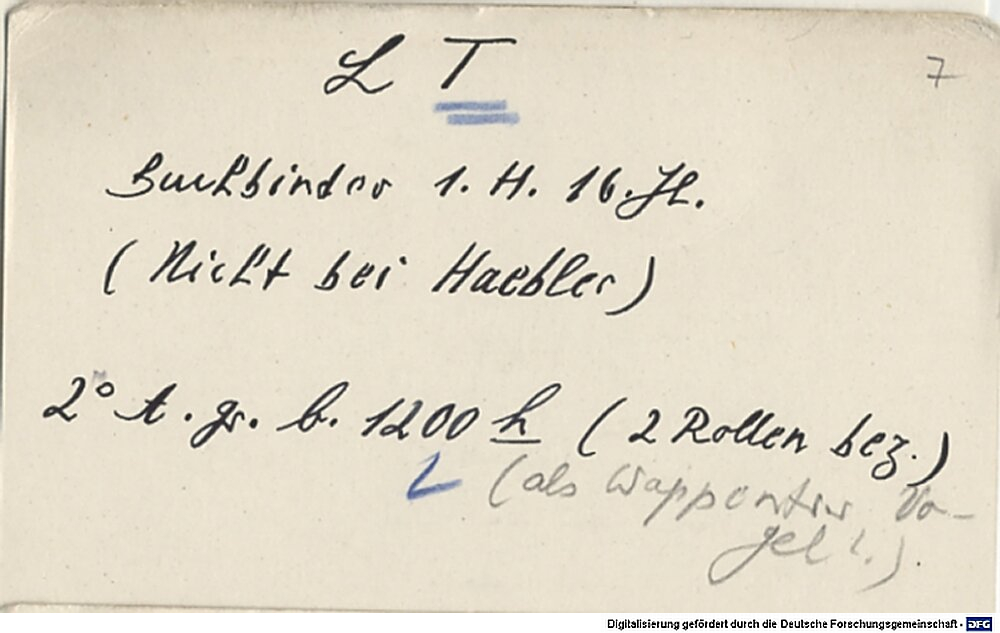 L T
7
Buchbinder 1. H. 16. Jh.
(Nicht bei Haebler)
2° A. gr. b. 1200 h (2 Rollen bez.)
(als Wappentier Vo-
gel ?.).
Digitalisierung gefördert durch die Deutsche Forschungsgemeinschaft - DFG